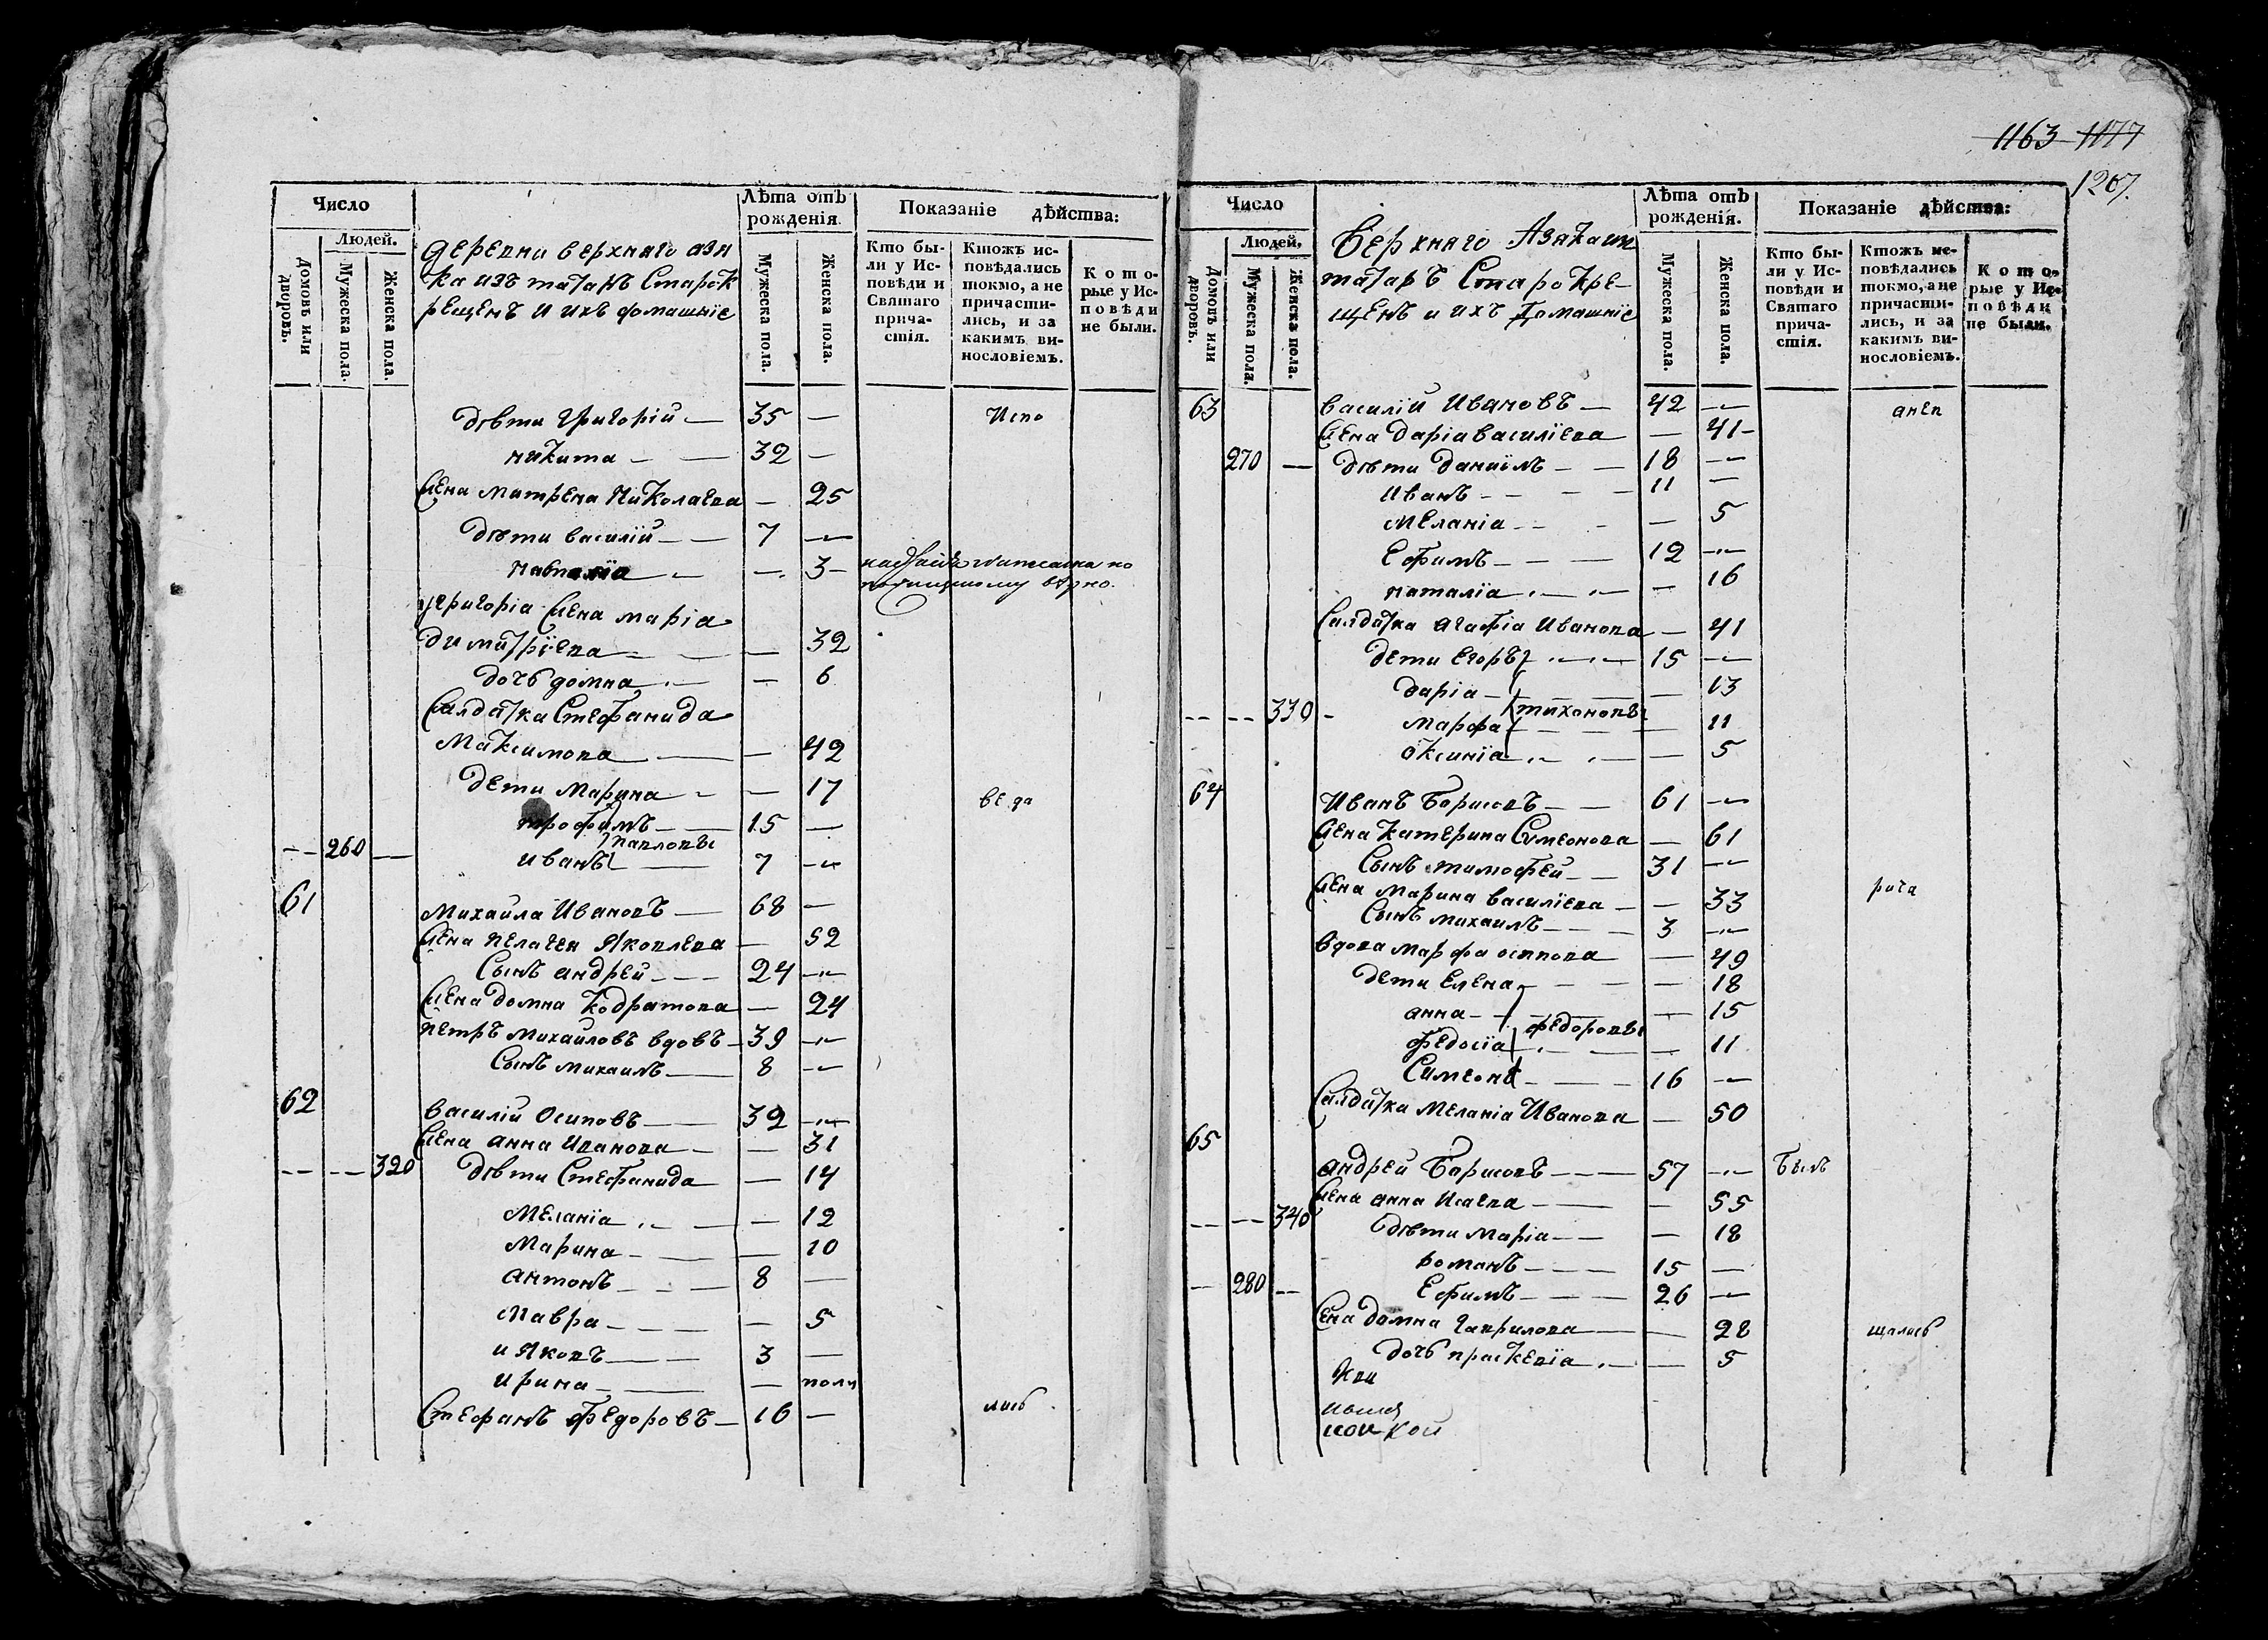 1163 1177
1207.
Число
Людей.
Домовъ или дворовъ.
Мужеска пола.
Женска пола.
деревни верхняго азя
ка изъ татаръ Старок
рещенъ и ихъ домашніе
Лѣта отъ рожденія.
Мужеска пола.
Женска пола.
Показаніе дѣйства:
Кто бы-
ли у Ис-
повѣди и
Святаго
прича-
стія.
Ктожъ ис-
повѣдались
токмо, а не
причасти-
лись, и за
какимъ ви-
нословіемъ.
Кото-
рые у Ис-
повѣди
не были.
дѣти Григорій — 35 — Испо
никита — — 32 —
жена матрена Николаева — 25
дѣти василій — — 7 —
— — 3 —
григоріа жена маріа
димитріева — — — 32
дочь домна — — 6
Салдатка Стефанида
Максимова — — 42
дети Марина — — 17 веда
трофимъ — — 15 —
павловы
— — 260 — иванъ — 7 —
61 Михаила Ивановъ — 68 —
жена пелагея Яковлева — 52
Сынъ андрей — — 24 —
жена домна Кодратова — 24
петръ михайловъ вдовъ — 39 —
Сынъ михаилъ — 8 —
62 василій Осиповъ — 32 —
жена анна Иванова — — 31
— — — — 320 дѣти Стефанида — 14
Меланіа — — — 12
Марина — — — 10
антонъ — — — 8 —
Мавра — — — — 5
и Яковъ — — 3 —
ирина — — — полъ
Стефанъ Федоровъ — 16 — лись
Число
Людей.
Домовъ или дворовъ.
Мужеска пола.
Женска пола.
Верхняго Азяка из
татаръ Старокре-
щенъ и ихъ домашніе
Лѣта отъ рожденія.
Мужеска пола.
Женска пола.
Показаніе дѣйства:
Кто бы-
ли у Ис-
повѣди и
Святаго
прича-
стія.
Ктожъ ис-
повѣдались
токмо, а не
причасти-
лись, и за
какимъ ви-
нословіемъ.
Кото-
рые у Ис-
повѣди
не были.
63 василій Ивановъ — 42 — анеп
жена даріа василіева — 41 —
270 — дѣти даниилъ — — 18 —
иванъ — — — 11 —
меланіа — — — 5
Ефимъ — — — 12 —
наталіа — — — 16
Салдатка агафіа Иванова — 41
дети Егоръ — — 15 —
даріа — — — 13
тихоновы
— — — — 330 — марфа — — — 11
оксиніа — — — 5
64 Иванъ Борисовъ — — 61 —
жена катерина Симеонова — 61
Сынъ тимофей — — 31 —
жена марина василіева — — 33 рича
Сынъ михаилъ — — — 3 —
вдова марфа осипова — 49
дети Елена — — — 18
анна — — — 15
федоровы
федосіа — — — 11
Симеонъ — — — 16 —
Салдатка меланіа Иванова — 50
65 андрей Борисовъ — — 57 — Былъ
жена анна Исаева — — 55
— — — — 340 дѣти маріа — — — 18
романъ — — — 15 —
— 280 — Ефимъ — — — 26 —
жена домна гаврилова — — 28 щалисъ
дочь праскевіа — — 5